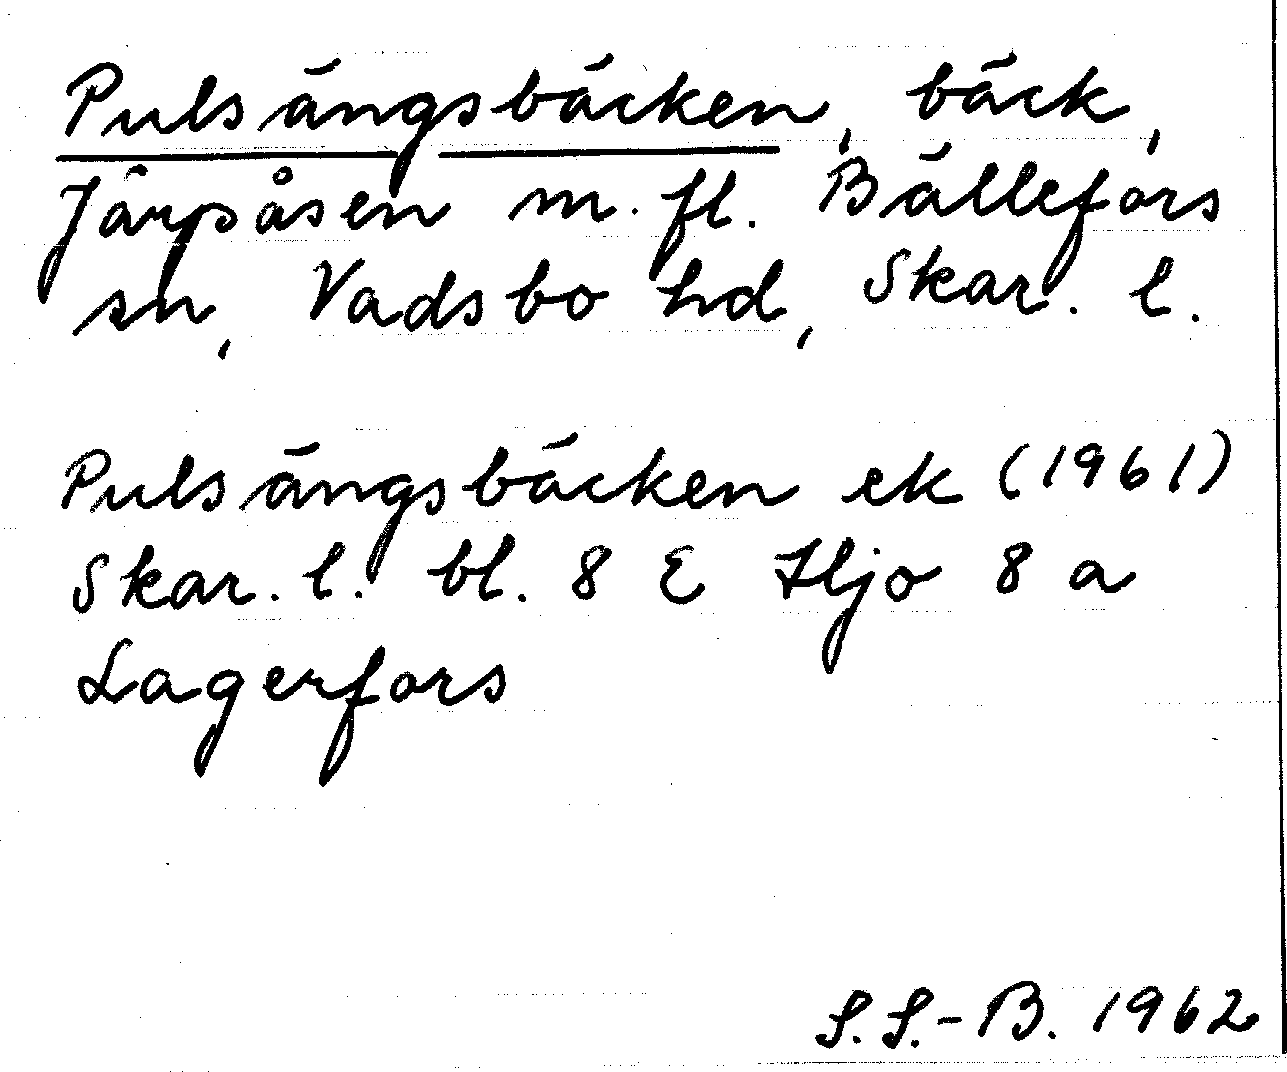 Pulsängsbäcken, bäck,
Järpåsen m. fl. Bällefors
sn, Vadsbo hd, Skar. l.
Pulsängsbäcken ek (1961)
Skar. l. bl. 8 E Hjo 8 a
Lagerfors
S.S.-B. 1962